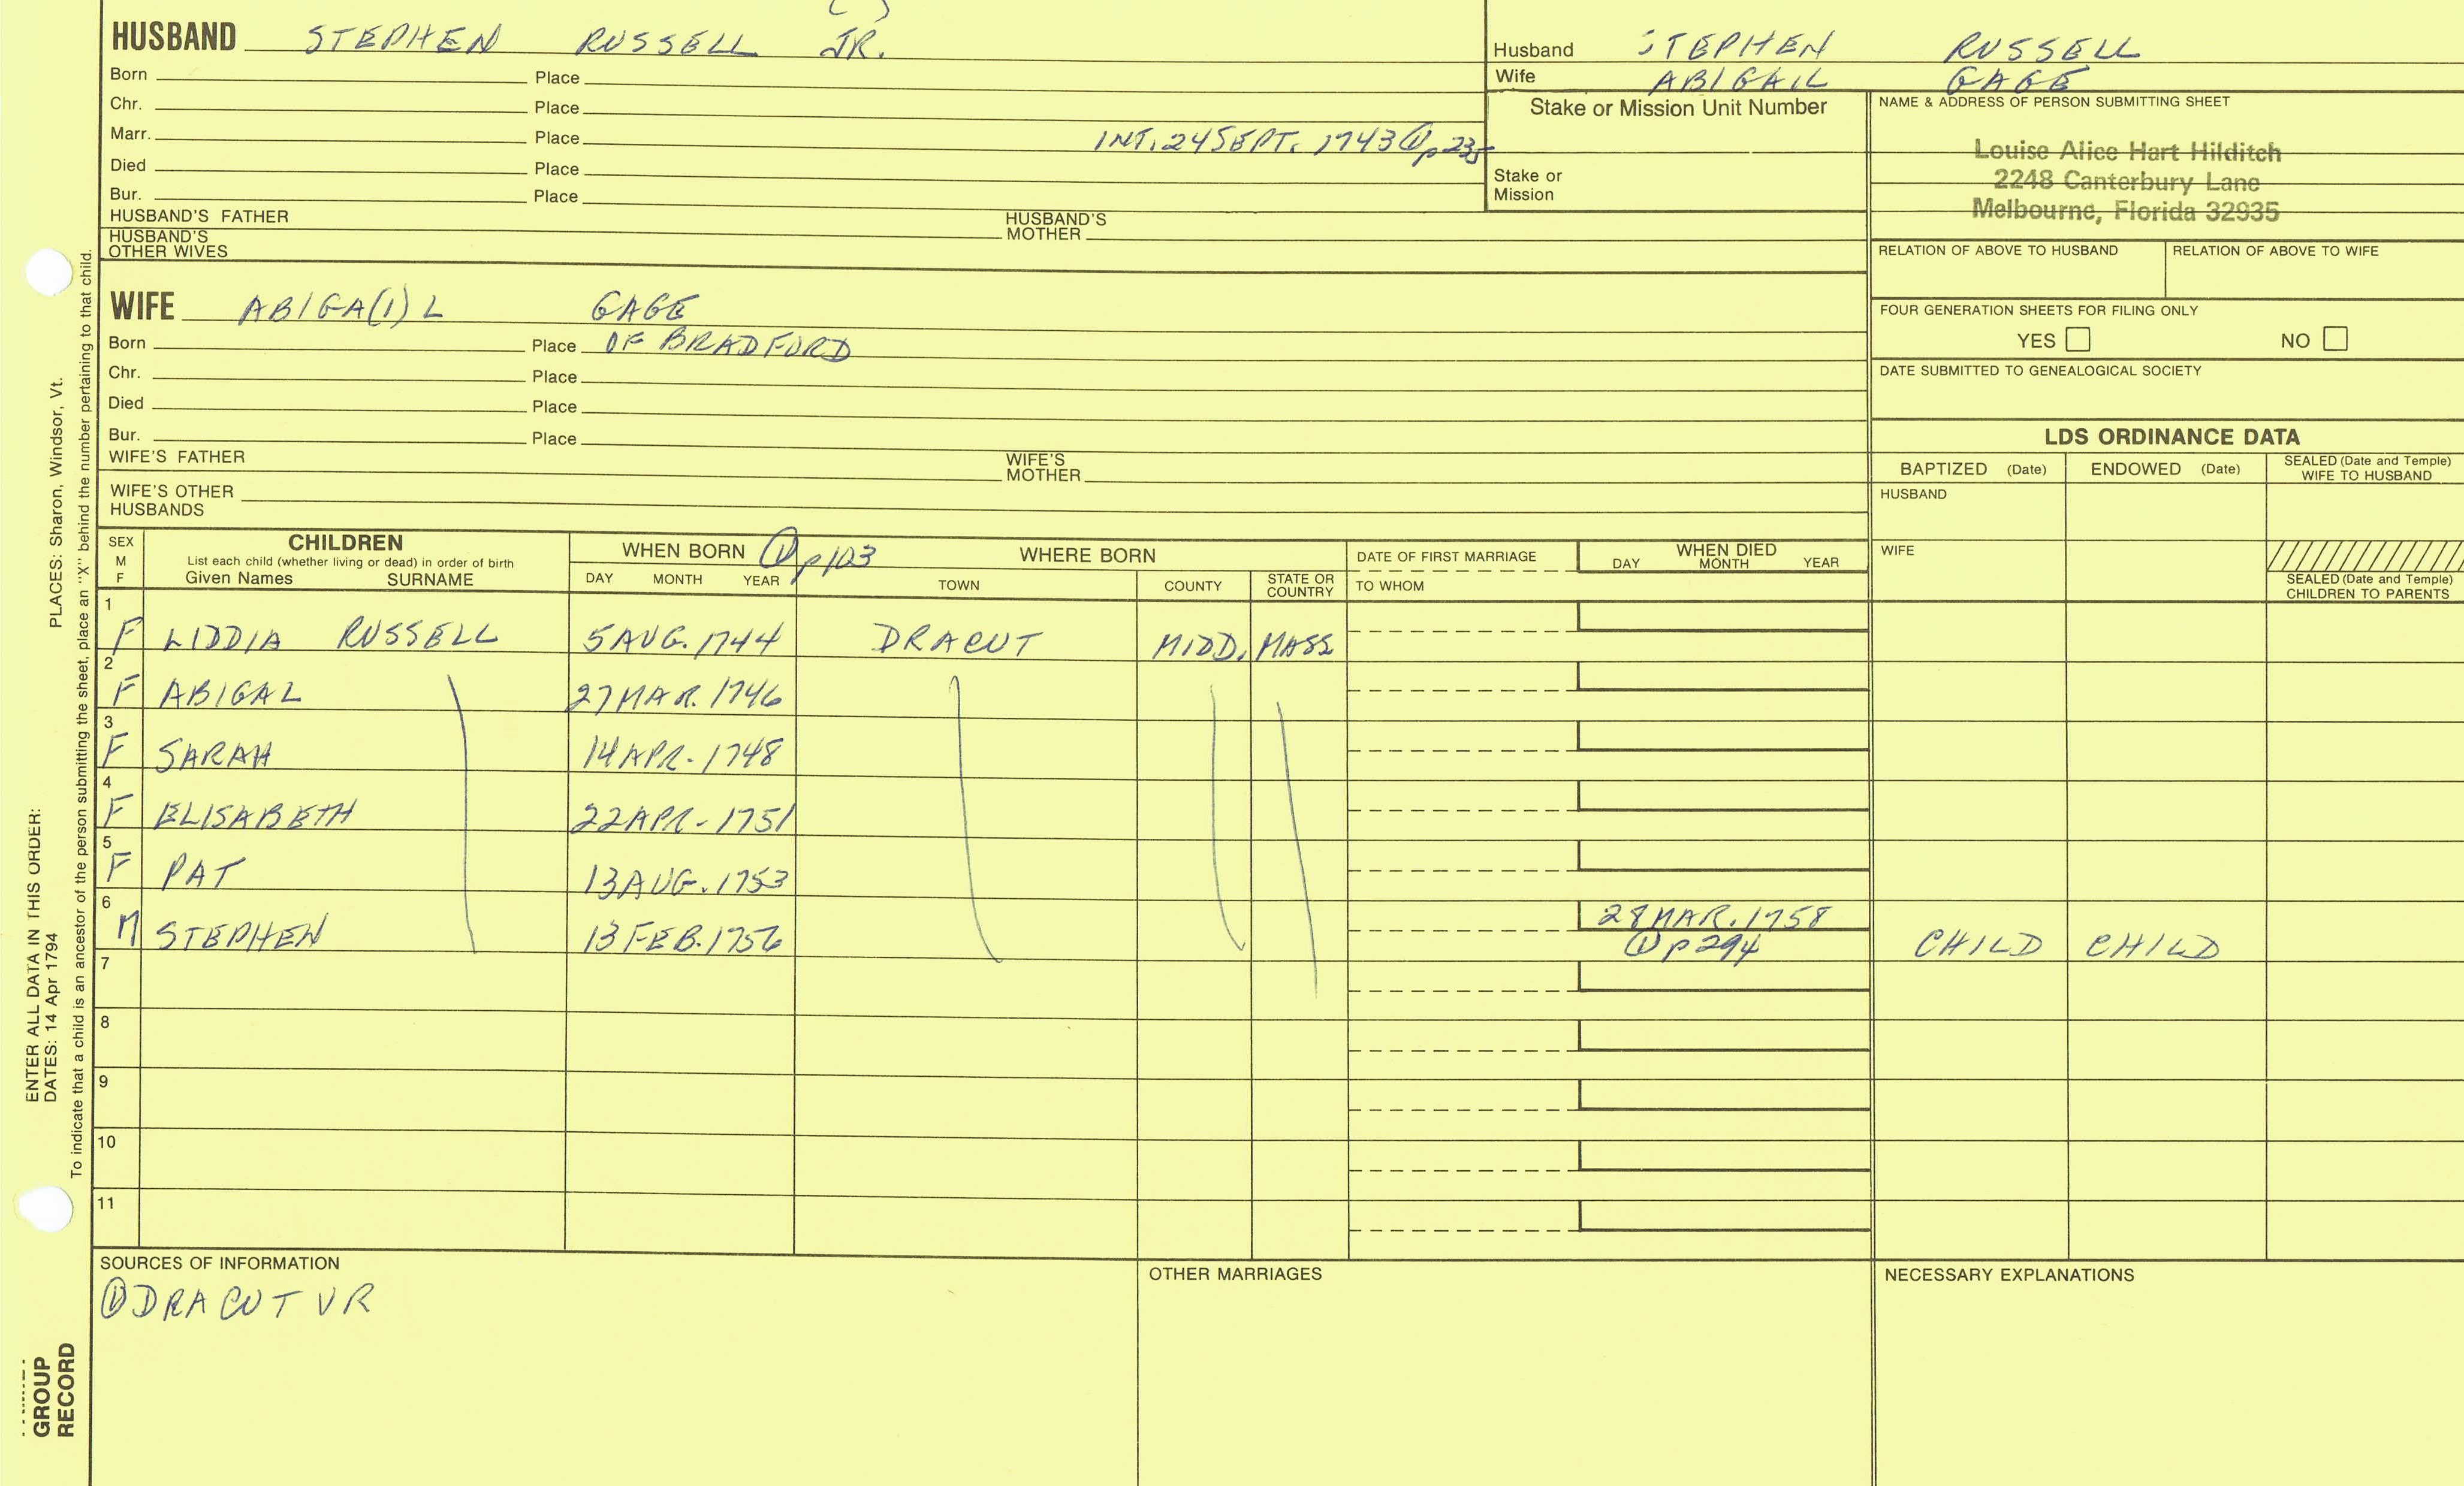 HUSBAND STEPHEN RUSSELL JR.
Born Place
Chr. Place
Marr. Place INT. 24 SEPT. 1743 ① p 235
Died Place
Bur. Place
HUSBAND'S FATHER HUSBAND'S MOTHER
HUSBAND'S OTHER WIVES
Husband STEPHEN RUSSELL
Wife ABIGAIL GAGE
Stake or Mission Unit Number
Stake or Mission
NAME & ADDRESS OF PERSON SUBMITTING SHEET
Louise Alice Hart Hilditch
2248 Canterbury Lane
Melbourne, Florida 32935
RELATION OF ABOVE TO HUSBAND RELATION OF ABOVE TO WIFE
FOUR GENERATION SHEETS FOR FILING ONLY
YES NO
DATE SUBMITTED TO GENEALOGICAL SOCIETY
WIFE ABIGA(I)L GAGE
Born Place OF BRADFORD
Chr. Place
Died Place
Bur. Place
WIFE'S FATHER WIFE'S MOTHER
WIFE'S OTHER HUSBANDS
LDS ORDINANCE DATA
BAPTIZED (Date) ENDOWED (Date) SEALED (Date and Temple) WIFE TO HUSBAND
HUSBAND
WIFE
SEALED (Date and Temple) CHILDREN TO PARENTS
SEX M F
CHILDREN
List each child (whether living or dead) in order of birth
Given Names SURNAME
WHEN BORN ① p 103 WHERE BORN
DAY MONTH YEAR TOWN COUNTY STATE OR COUNTRY
DATE OF FIRST MARRIAGE
TO WHOM
WHEN DIED
DAY MONTH YEAR
1 F LIDDIA RUSSELL 5 AUG. 1744 DRACUT MIDD. MASS
2 F ABIGAL 27 MAR. 1746
3 F SARAH 14 APR. 1748
4 F ELISABETH 22 APR. 1751
5 F PAT 13 AUG. 1753
6 M STEPHEN 13 FEB. 1756 28 MAR. 1758 ① p 294 CHILD CHILD
7
8
9
10
11
SOURCES OF INFORMATION
① DRACUT VR
OTHER MARRIAGES
NECESSARY EXPLANATIONS
ENTER ALL DATA IN THIS ORDER:
DATES: 14 Apr 1794 PLACES: Sharon, Windsor, Vt.
To indicate that a child is an ancestor of the person submitting the sheet, place an "X" behind the number pertaining to that child.
GROUP
RECORD